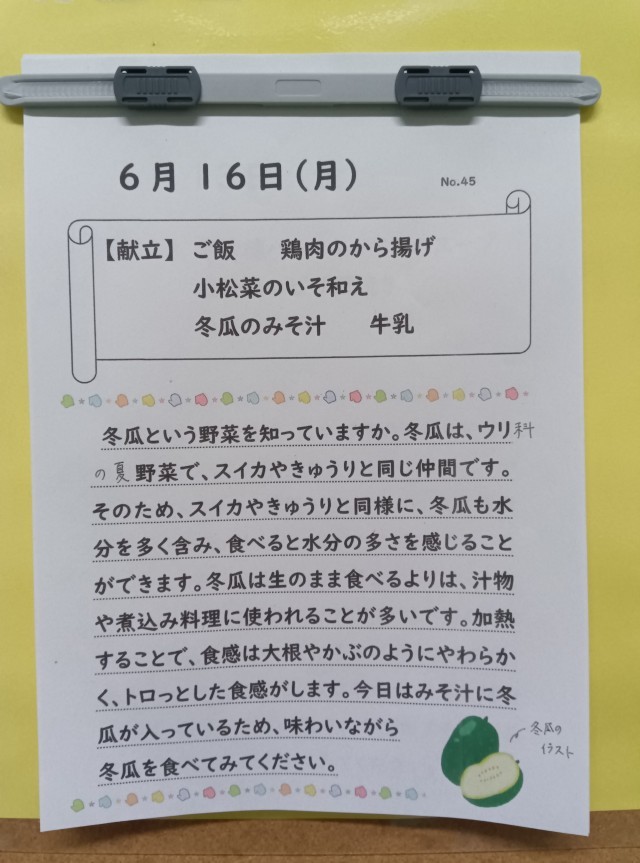 6月16日(月)
No.45
【献立】 ご飯 鶏肉のから揚げ
小松菜のいそ和え
冬瓜のみそ汁 牛乳
冬瓜という野菜を知っていますか。冬瓜は、ウリ科
の夏野菜で、スイカやきゅうりと同じ仲間です。
そのため、スイカやきゅうりと同様に、冬瓜も水
分を多く含み、食べると水分の多さを感じること
ができます。冬瓜は生のまま食べるよりは、汁物
や煮込み料理に使われることが多いです。加熱
することで、食感は大根やかぶのようにやわらか
く、トロっとした食感がします。今日はみそ汁に冬
瓜が入っているため、味わいながら
冬瓜を食べてみてください。
冬瓜の
イラスト